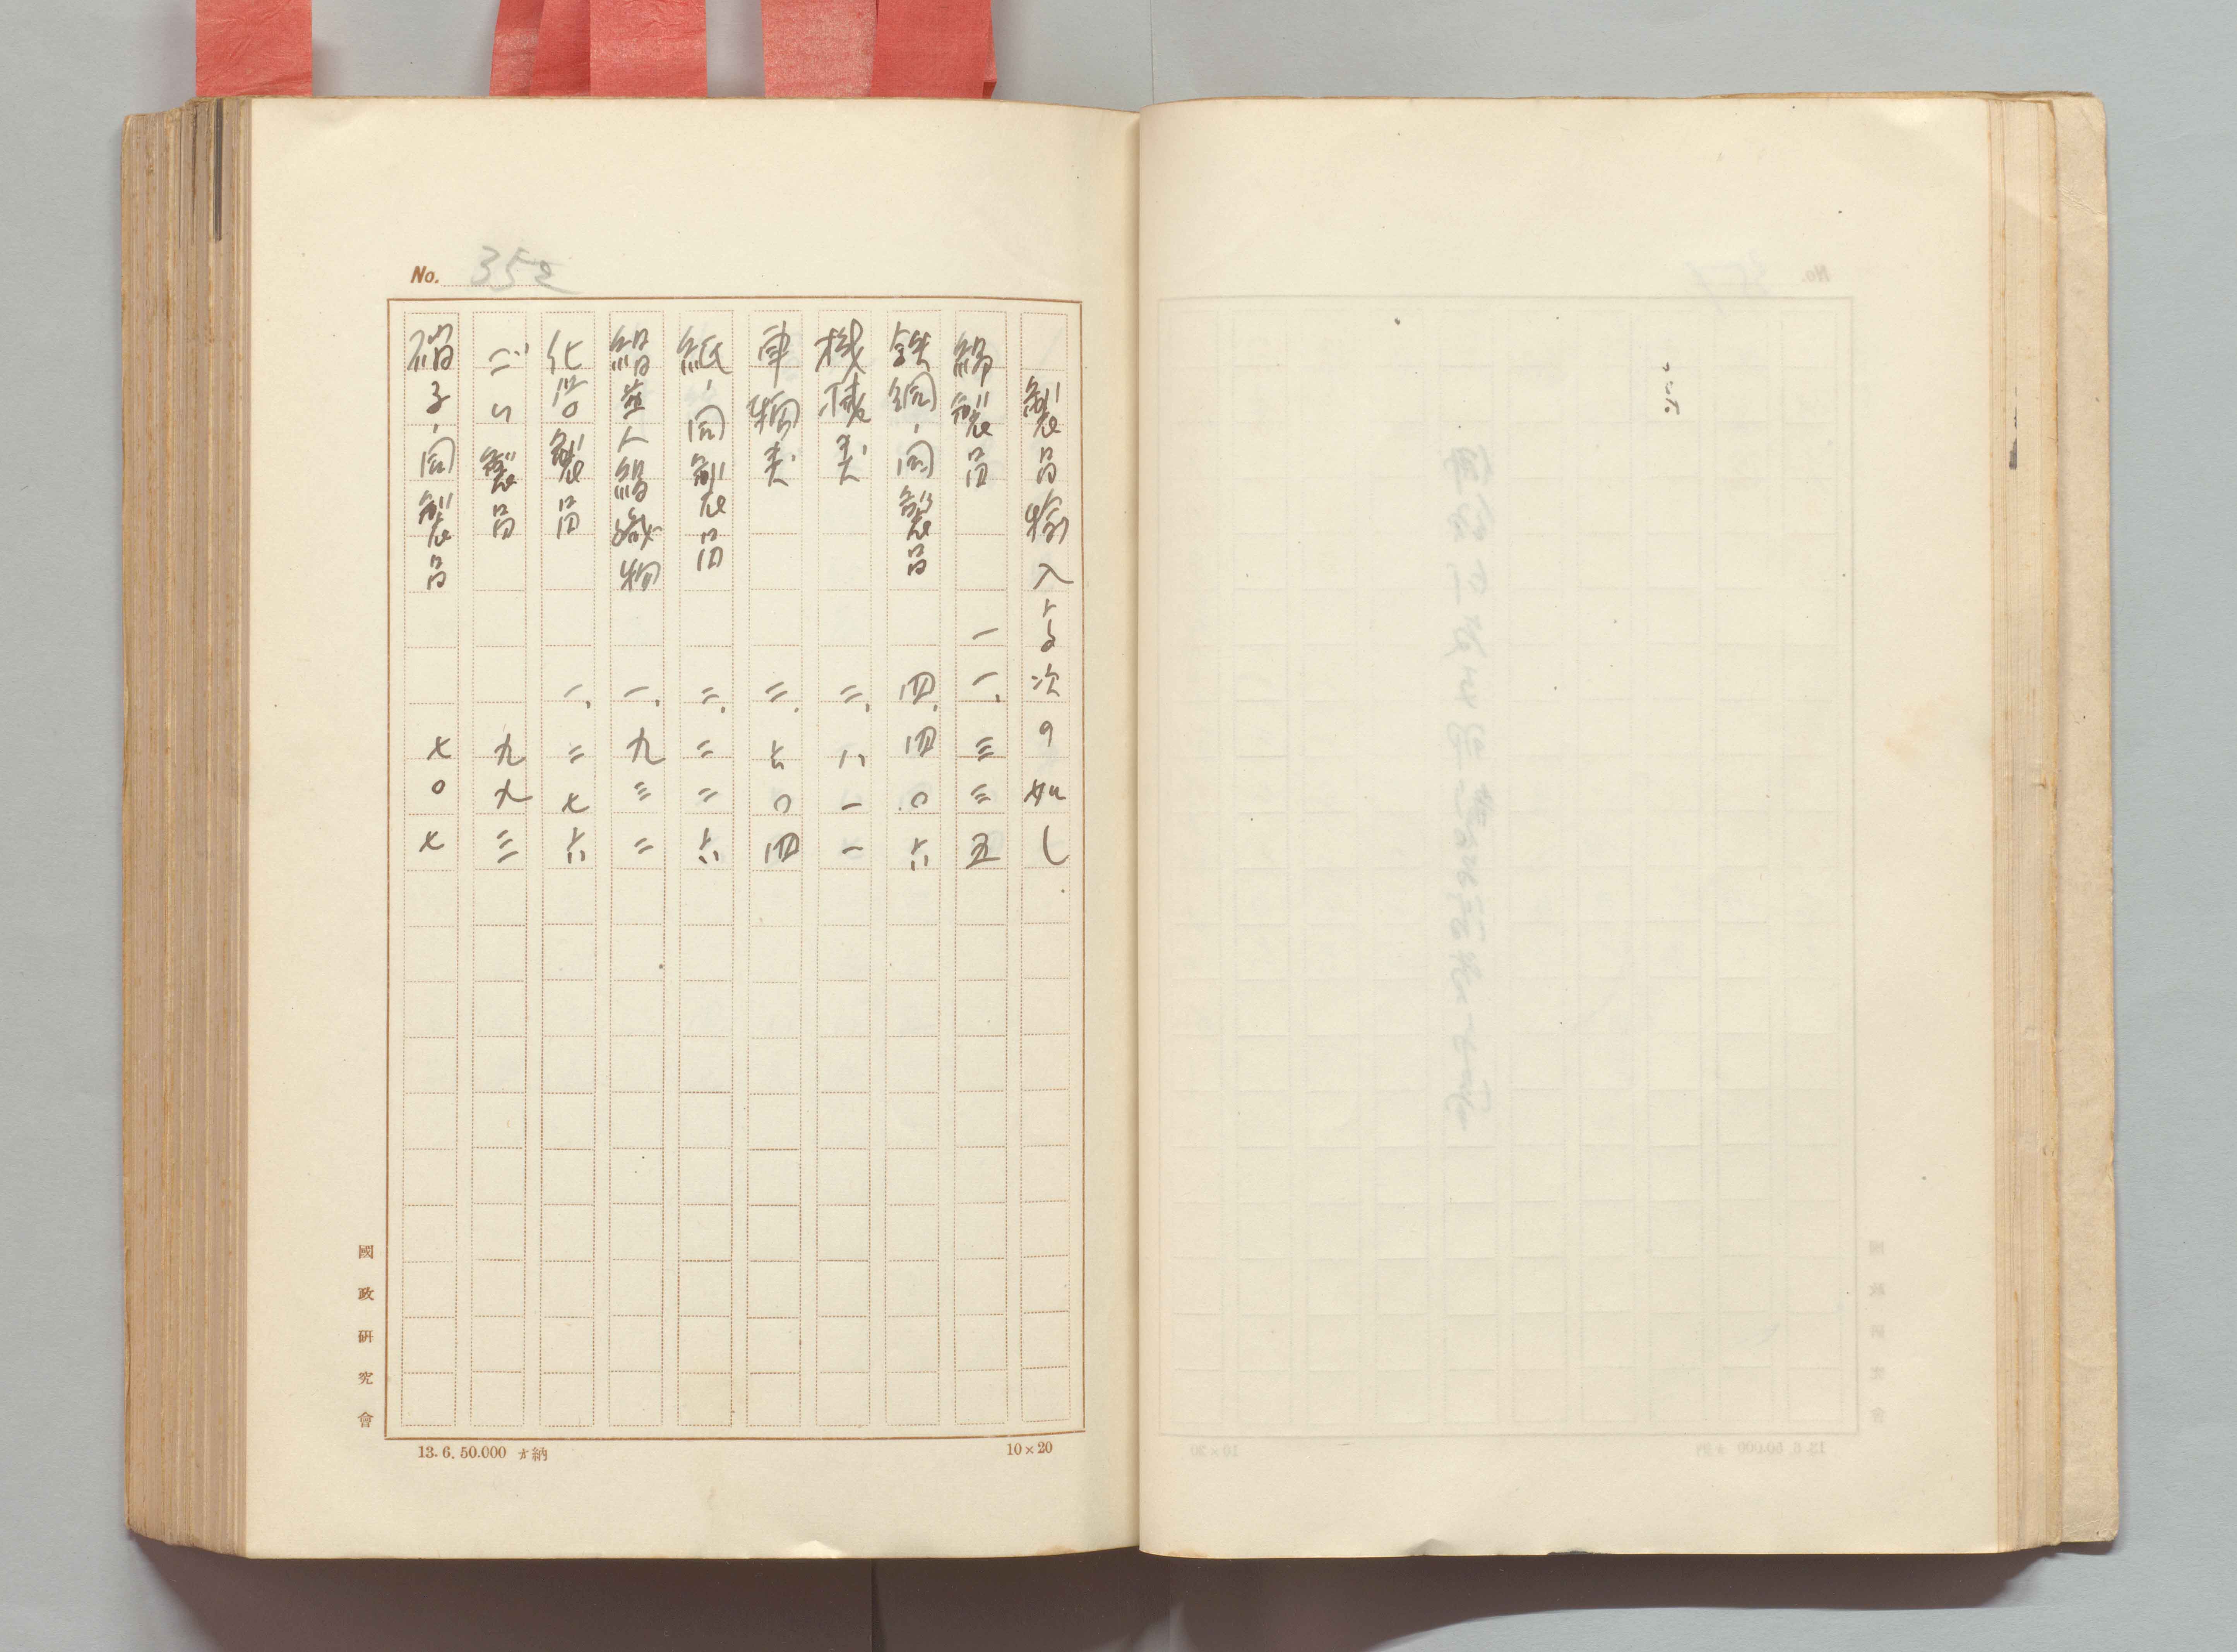 No. 352
製品輸入なよ次の如し
綿製品 一一、三三五
鉄鋼、同製品 四、四〇六
機械類 二、八一一
車輌類 二、六〇四
紙、同製品 二、二二六
絹並人絹織物 一、九三二
化学製品 一、二七六
ゴム製品 九九三
硝子、同製品 七〇七
國政研究會
13.6.50.000 納
10×20